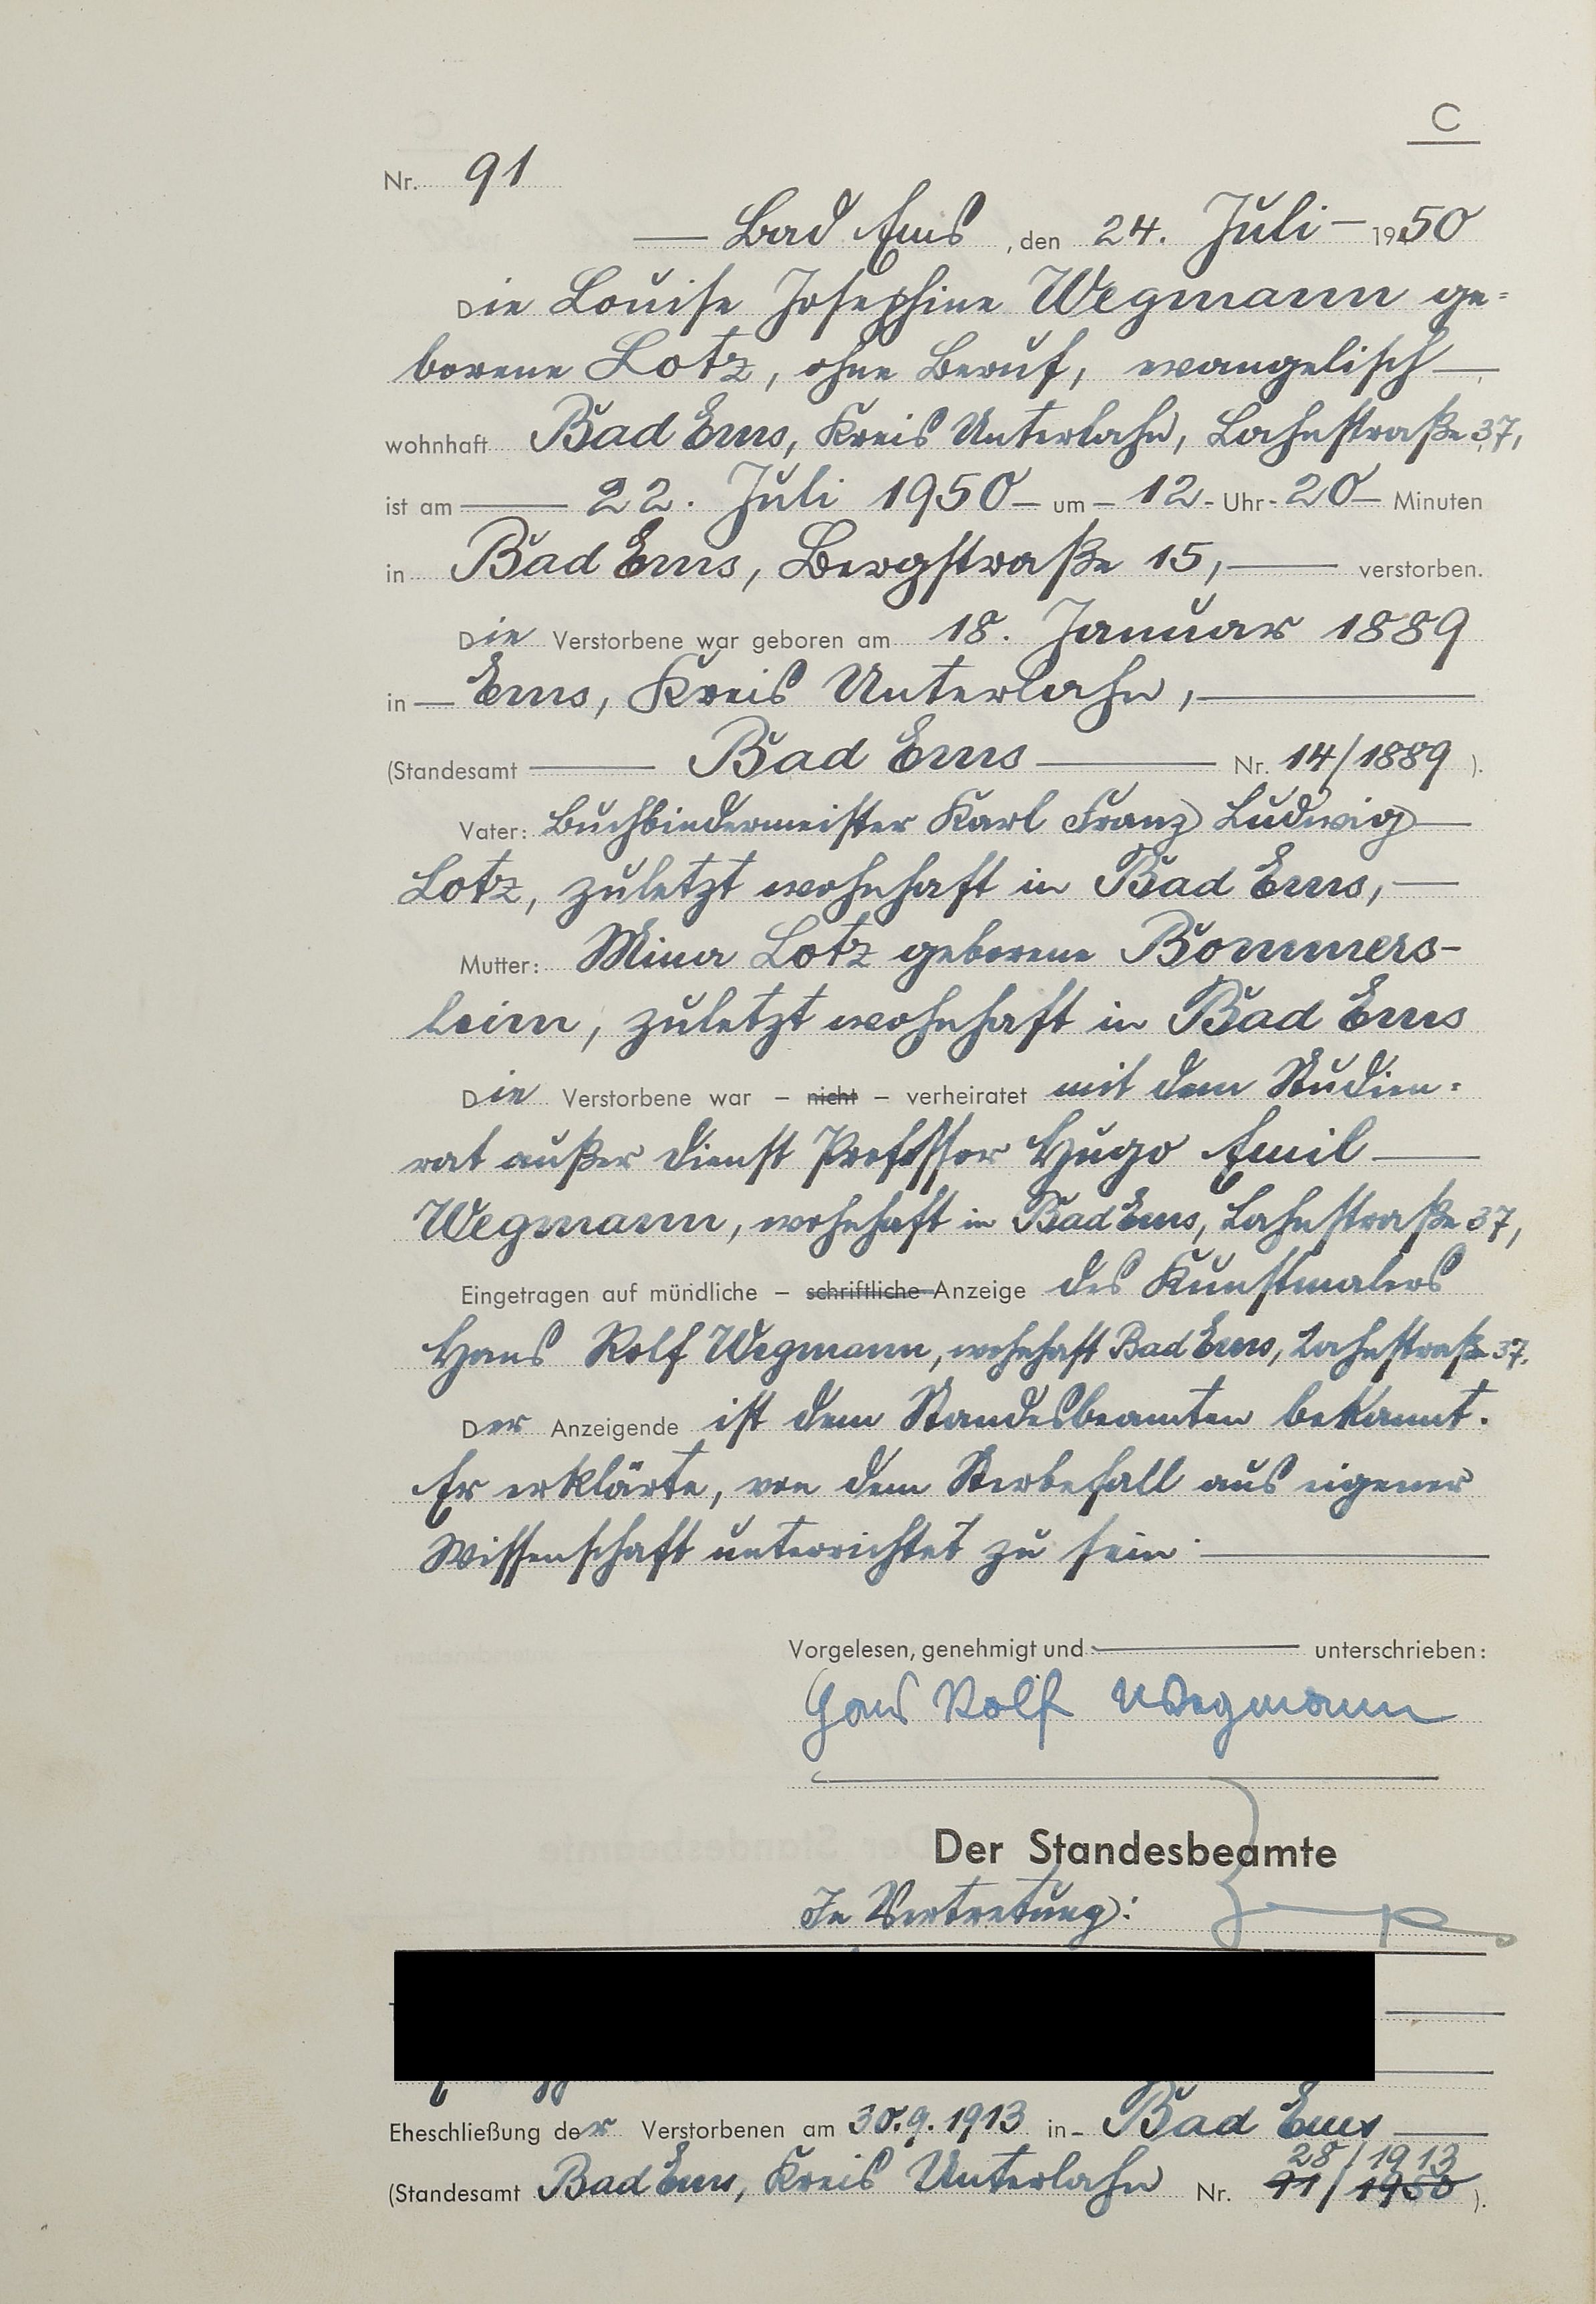 C
Nr. 91
Bad Ems, den 24. Juli 1950
Die Louise Josephine Wegmann ge=
borene Lotz, ohne Beruf, evangelisch
wohnhaft Bad Ems, Kreis Unterlahn, Lahnstraße 37,
ist am 22. Juli 1950 um 12 Uhr 20 Minuten
in Bad Ems, Bergstraße 15, verstorben.
Die Verstorbene war geboren am 18. Januar 1889
in Ems, Kreis Unterlahn,
(Standesamt Bad Ems Nr. 14/1889 ).
Vater: Buchbindermeister Karl Franz Ludwig
Lotz, zuletzt wohnhaft in Bad Ems,
Mutter: Mina Lotz geborene Bommers-
heim, zuletzt wohnhaft in Bad Ems
Die Verstorbene war – nicht – verheiratet mit dem Studien=
rat außer Dienst Professor Hugo Emil
Wegmann, wohnhaft in Bad Ems, Lahnstraße 37,
Eingetragen auf mündliche – schriftliche Anzeige des Kunstmalers
Hans Rolf Wegmann, wohnhaft Bad Ems, Lahnstraße 37.
Der Anzeigende ist dem Standesbeamten bekannt.
Er erklärte, von dem Sterbefall aus eigener
Wissenschaft unterrichtet zu sein.
Vorgelesen, genehmigt und unterschrieben:
Hans Rolf Wegmann
Der Standesbeamte
In Vertretung:
Eheschließung der Verstorbenen am 30.9.1913 in Bad Ems
28/1913
(Standesamt Bad Ems, Kreis Unterlahn Nr. 91/1950 ).